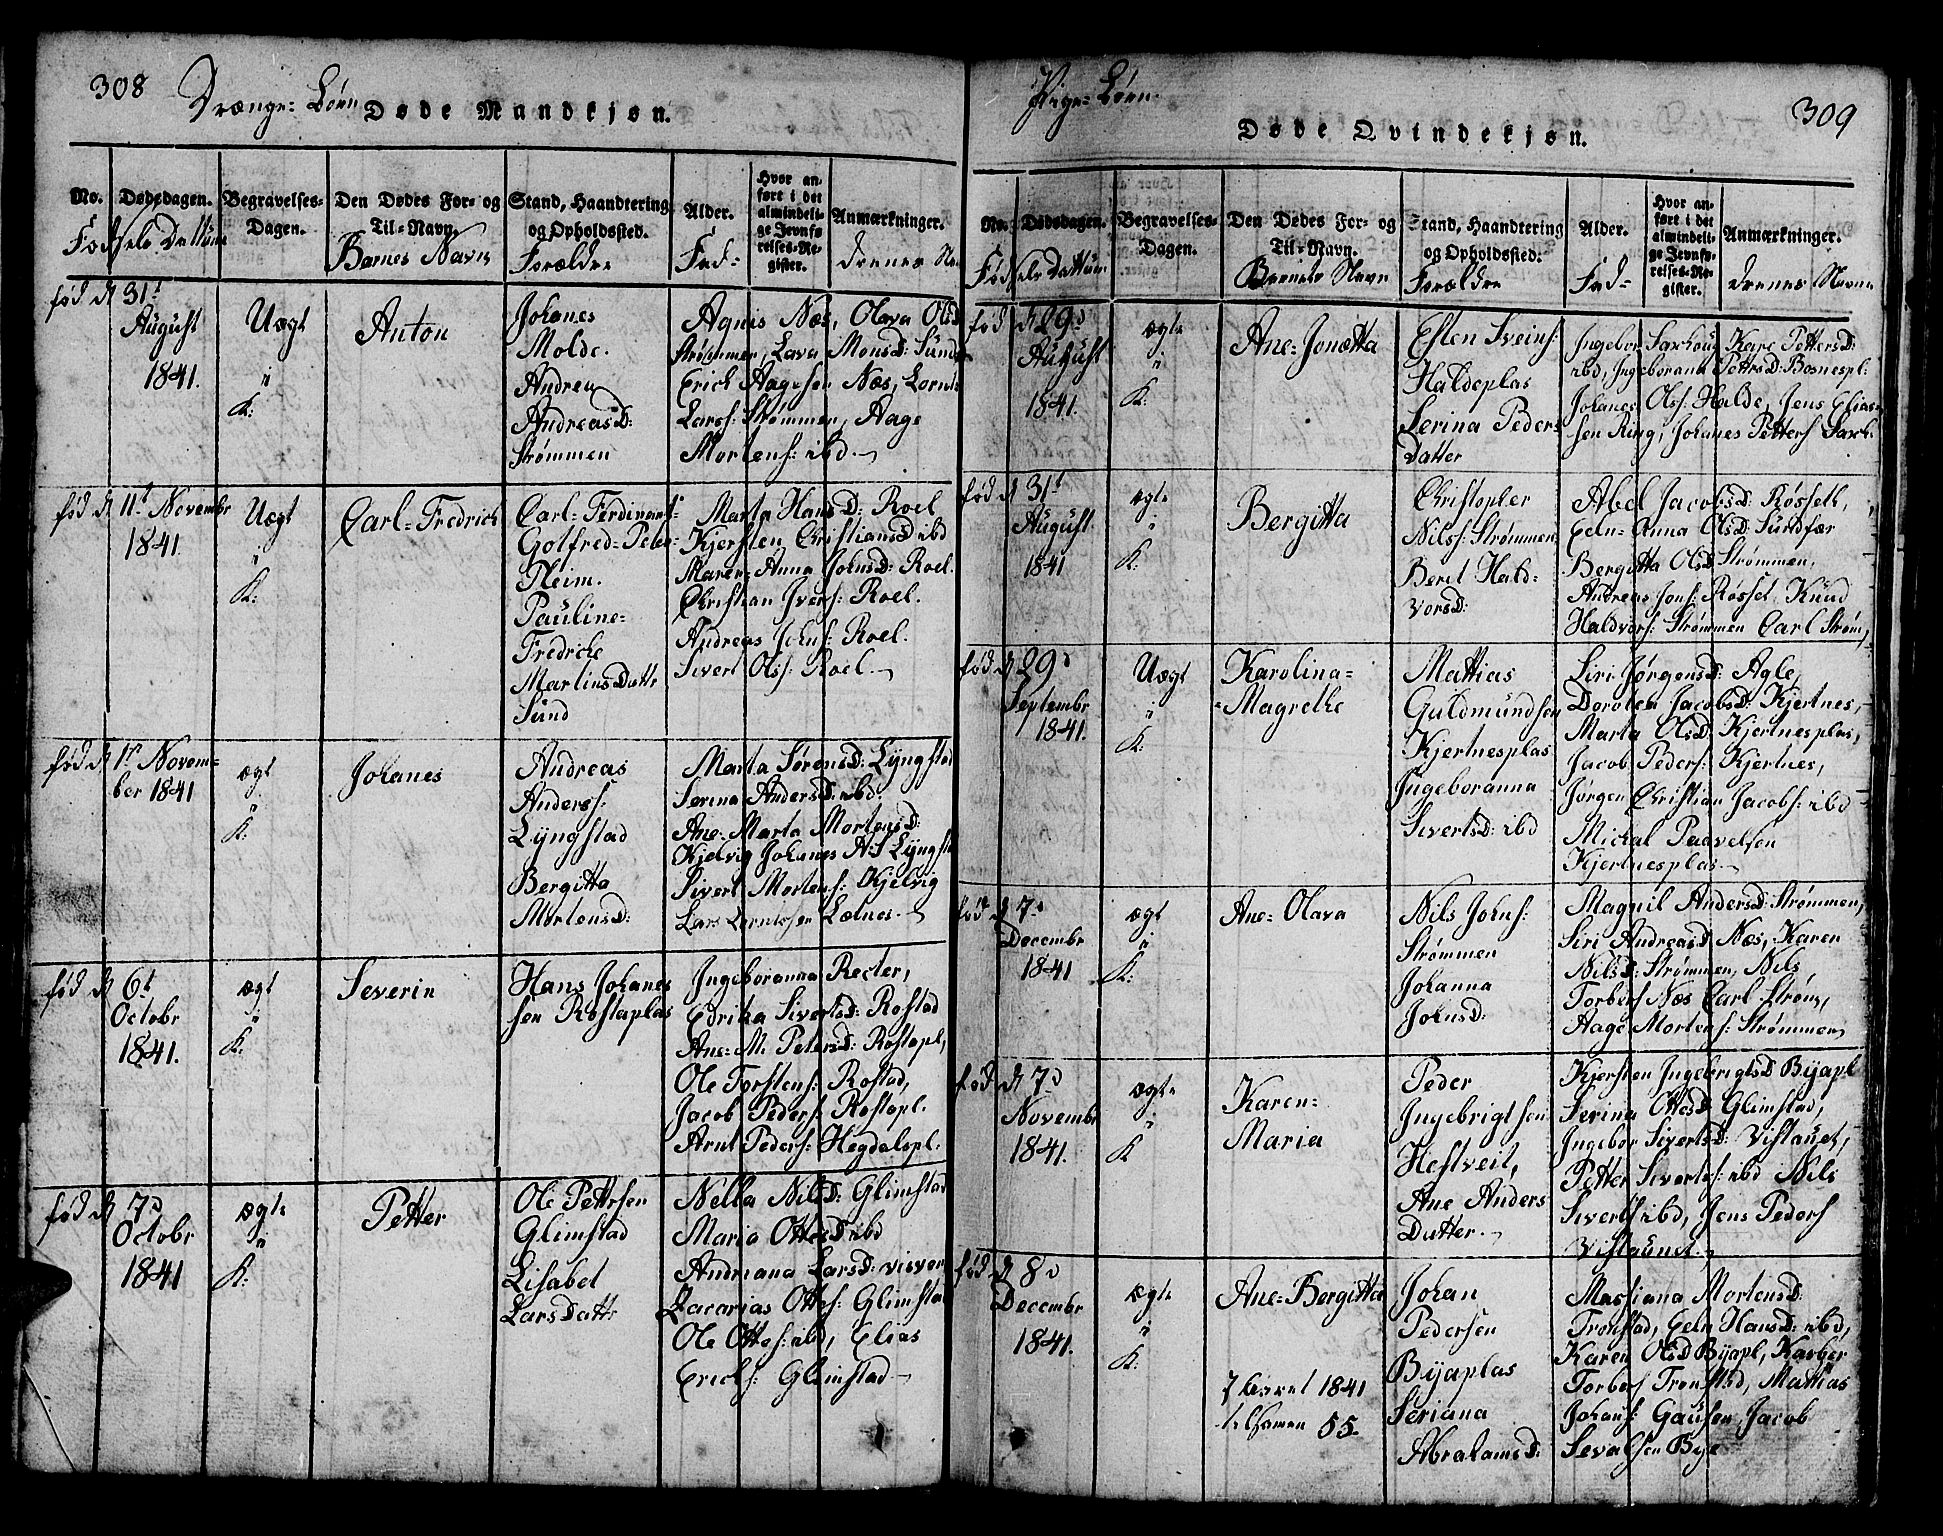 308 Drænge= Børn
Døde Mandkjøn.
No. Dødsdagen. Begravelses-Dagen. Den Dødes For- og Til-Navn. Stand, Haandtering og Opholdssted. Alder. Hvor anført i det almindelige Jevnførelses-Register. Anmærkninger.
Fødsels Dattum Barnes Navn Forældre Fad- drenes Na
fød d 31t
August
1841.
Uægt
"
K:
Anton
Johanes
Molde.
Andrea
AndreasD:
Strømmen
Agnis Næs, Olava OlsD
Strømmen, Lava MonsD: Sund
Erich Aagesen Næs, Bornt
Larss: Strømmen, Aage
Mortens: ibd.
fød d 11t Novembr
1841.
Uægt
"
K:
Carl= Fredrich
Carl= Ferdinant
Golfred= Peter=
Heim.
Pauline=
Fredriche
MartinsDattr
Sund
Marta HansD: Roel
Kjersten ChristiansD ibd
Maren= Anna JohnsD: Roel.
Christian Ivers: Roel.
Andreas Johns: Roel.
Sivert Olss: Roel.
fød d 1r Novem=
ber 1841
ægt
"
K:
Johanes
Andreas
Anderss:
Lyngstad
Bergitta
MortensD:
Marta SørensD: Lyngstad
Serina AndersD: ibd
Ane= Marta MortensD:
Kjelvig Johanes NS Lyngst
Sivert Mortens: Kjelvig
Lars Berntsen Lælnes.
fød d 6t
Octobr
1841.
ægt
"
K:
Severin
Hans Johanes
sen Rostaplas
Ingeboranna Recter,
Edrika SivertsD: Rostad
Ane= M. PetersD: Rostapl,
Ole Torstens: Rostad,
Jacob Peders: Rostapl.
Arnt Peders: Hegdalspl:
fød d 7d
Octobr
1841
ægte
"
K:
Petter
Ole Pettrsen
Glimstad
Lisabet
LarsDattr
Nella NilsD: Glimstad
Maria OttesD ibd
Andriana LarsD: visver
Zacarias Ottes: Glimstad
Ole Ottes: ibd, Elias
Erichs: Glimstad
Pige= Børn.
309
Døde Qvindekjøn.
No. Dødsdagen. Begravelses-Dagen. Den Dødes For- og Til-Navn. Stand, Haandtering og Opholdssted. Alder. Hvor anført i det almindelige Jevnførelses-Register. Anmærkninger.
Fødsels Dattum Barnets Navn Forældre Fad- drenes Navne
fød d 29d
August
1841.
ægte
"
K:
Ane= Jonetta
Esten Sveins:
Haldeplas
Serina Peders
Datter
Ingebor Saxhoug Kare PettersD:
ibd, Ingeborana PettrsD: Bosnespl:
Johanes Olss: Halde, Jens Elias=
sen Ring, Johanes Petters Saxh.
fød d 31t
August
1841
ægte
"
K:
Bergitta
Christopher
Nilss: Strømmen
Berit Hald=
vorsD:
Abel JacobsD: Røsset,
Eeln= Anna OlsD: Sundfær
Bergitta OlsD Strømmen,
Andreas Jons: Røsset, Knud
Haldvors: Strømmen Carl Strøm,
fød d 29d
Septembr
1841.
Uægt
"
K:
Karolina=
=Magrethe
Mattias
Guldmundsen
Kjertnesplas
Ingeboranna
SivertsD: ibd
Siri JørgensD: Agle,
Dorotea JacobsD: Kjertnes,
Marta OlsD: Kjertnesplas,
Jacob Peders: Kjertnes,
Jørgen Christian Jacobs: ibd
Michal Paavelsen
Kjertnesplas
fød d 7d
Decembr
1841
ægt
"
K:
Ane= Olava
Nils Johns:
Strømmen
Johanna
JohnsD:
Magnil AndersD: Strømmen,
Siri AndreasD Næs, Karen
NilsD: Strømmen, Nils
Torbers Næs Carl Strøm,
Aage Mortens: Strømmen
fød d 7d
Novembr
1841.
ægte
"
K
Karen=
Maria
Peder
Ingebrigtsen
Hestveit,
Ane Anders
Datter.
Kjersten IngebrigtsD Byapl
Serina OttesD Glimstad,
Ingebor SivertsD: Vistaunet,
Petter Siverts: ibd Nils
Siverts ibd, Jens Peders
Vistaunet.
fød d 8d
Decembr
1841.
ægte
"
K:
Ane= Bergitta
1841
55.
Johan
Pedersen
Byaplas
Seriana
AbrahamsD:
Mastiana MortensD:
Tronstad, Eeln HansD: ibd,
Karen OlsD Byapl, Karber
Torbers Tronstad, Mattias
Johans: Gausen Jacob
Sevalsen Bye